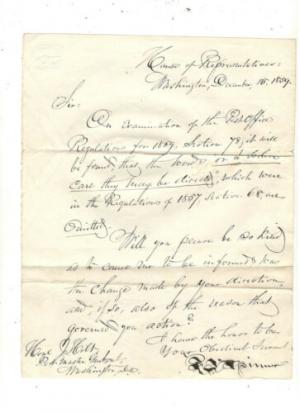 House of Representatives:
Washington, December 15, 1859.
Sir:
On examination of the Post Office
Regulations for 1859, Section 78, it will
be found, that the words
Care they may be divided, which were
in the Regulations of 1857 Section 68, are
omitted.
Will you please be so kind
as to cause me to be informed was
the change made by your direction,
and, if so, also of the reason that
governed you action?
I have the honor to be
Your Obedient Servant
Hon J Holt
Post Master General
Washington, D.C.